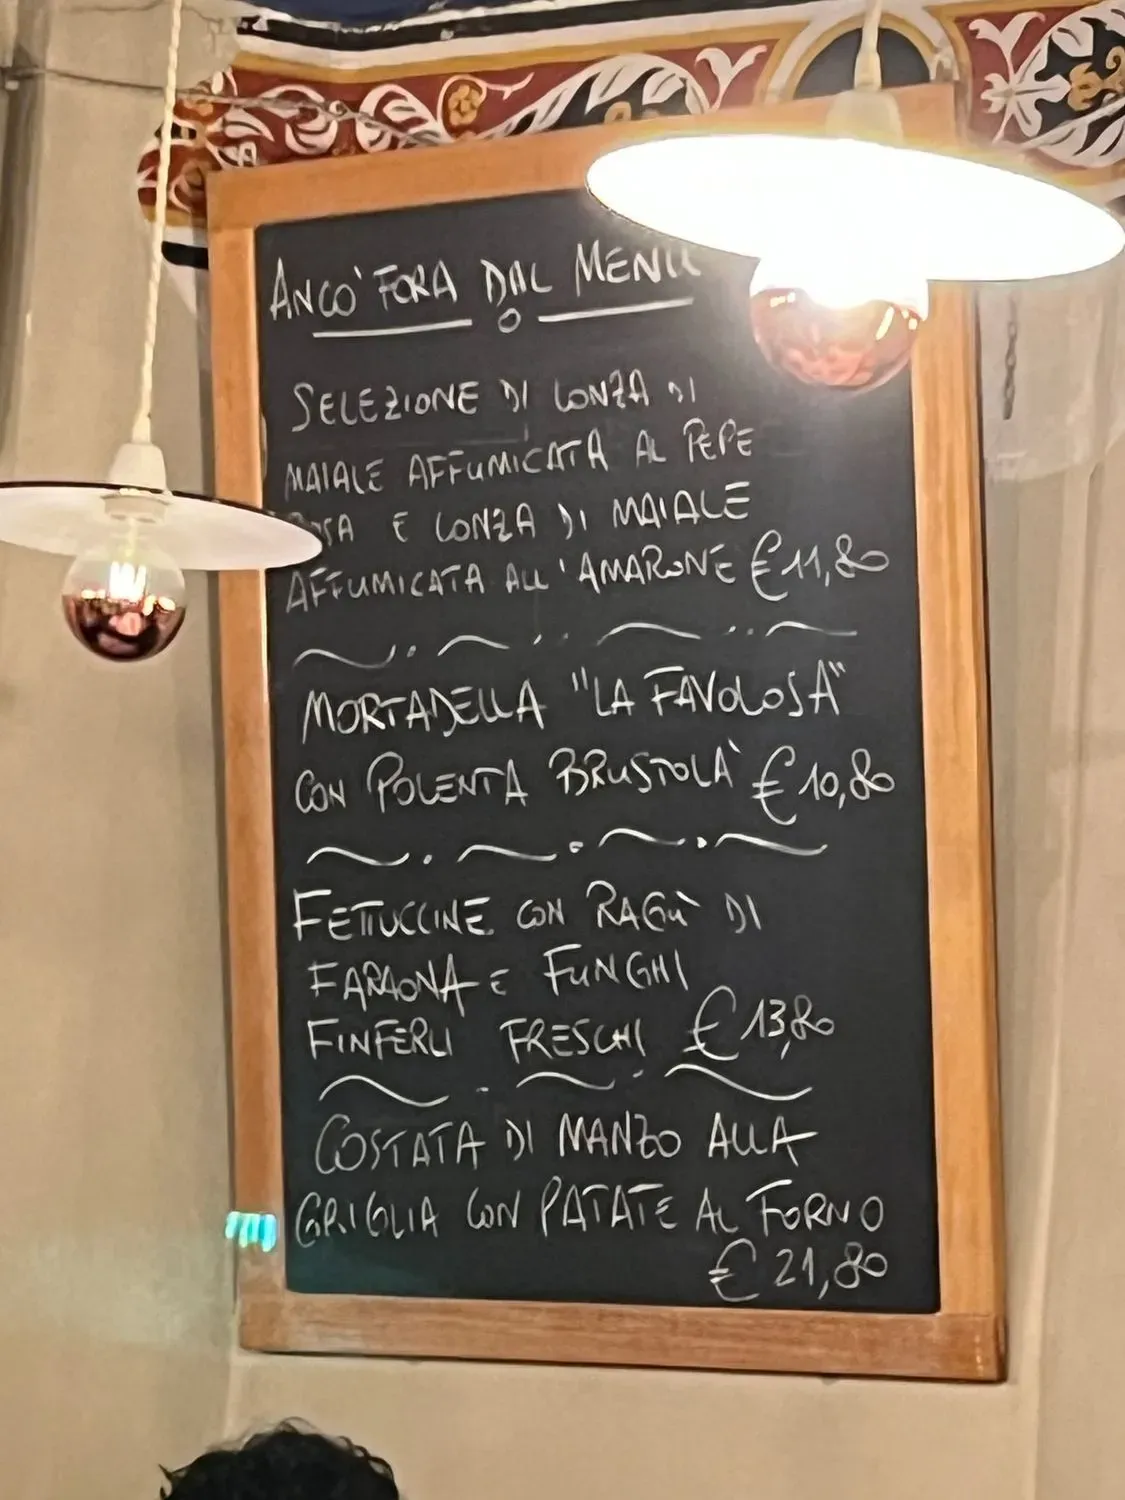 ANCO' FORA DAL MENU
SELEZIONE DI LONZA DI
MAIALE AFFUMICATA AL PEPE
ROSA E LONZA DI MAIALE
AFFUMICATA ALL'AMARONE € 11,80
MORTADELLA "LA FAVOLOSA"
CON POLENTA BRUSTOLA' € 10,80
FETTUCCINE CON RAGÙ DI
FARAONA E FUNGHI
FINFERLI FRESCHI € 13,80
COSTATA DI MANZO ALLA
GRIGLIA CON PATATE AL FORNO
€ 21,80